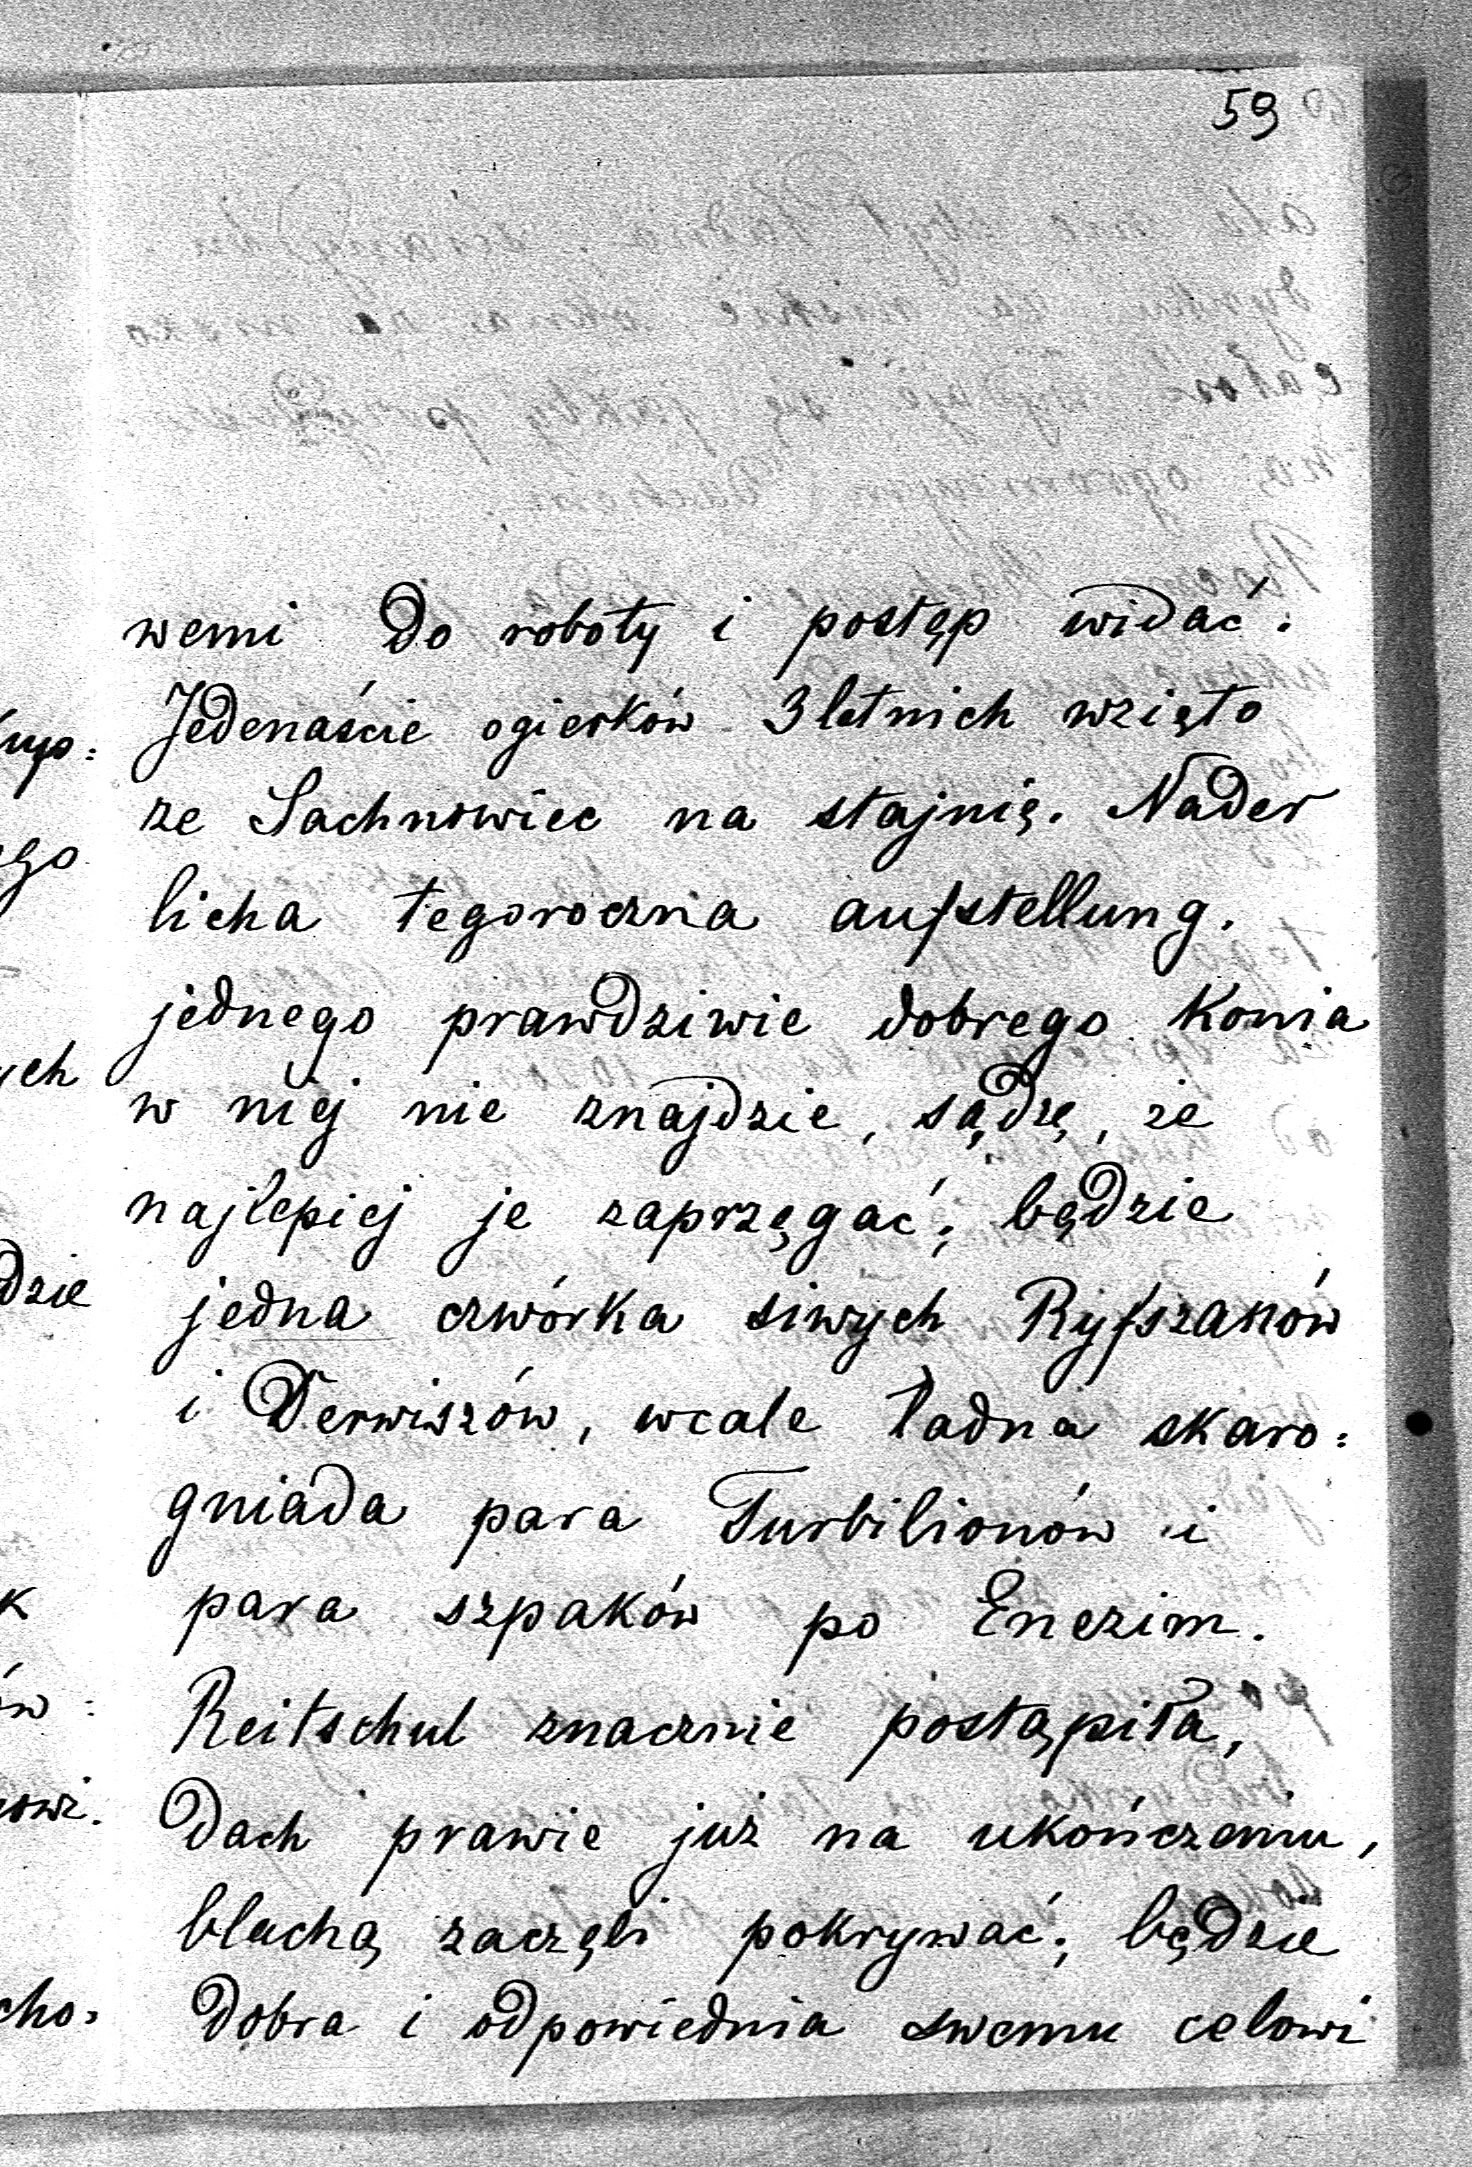 59
wemi do roboty i postęp widać.
Jedenaście ogierków 3letnich wzięto
ze Sachnowiec na stajnię. Nader
licha tegoroczna aufstellung.
jednego prawdziwie dobrego konia
w niej nie znajdzie, sądzę, że
najlepiej je zaprzęgać; będzie
jedna czwórka siwych Ryfszaków
i Derwiszów, wcale ładna skaro=
gniada para Turbilionów i
para szpaków po Enezim.
Reitschul znacznie postąpiła,
dach prawie już na ukończeniu,
blachą zaczęli pokrywać; będzie
dobra i odpowiednia swemu celowi